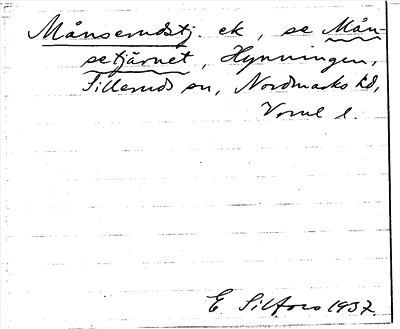 Månserudstj. ek, se Mån-
setjärnet, Hynningen,
Sillerud sn, Nordmarks hd,
Vrml l.
E. Silfors 1937.